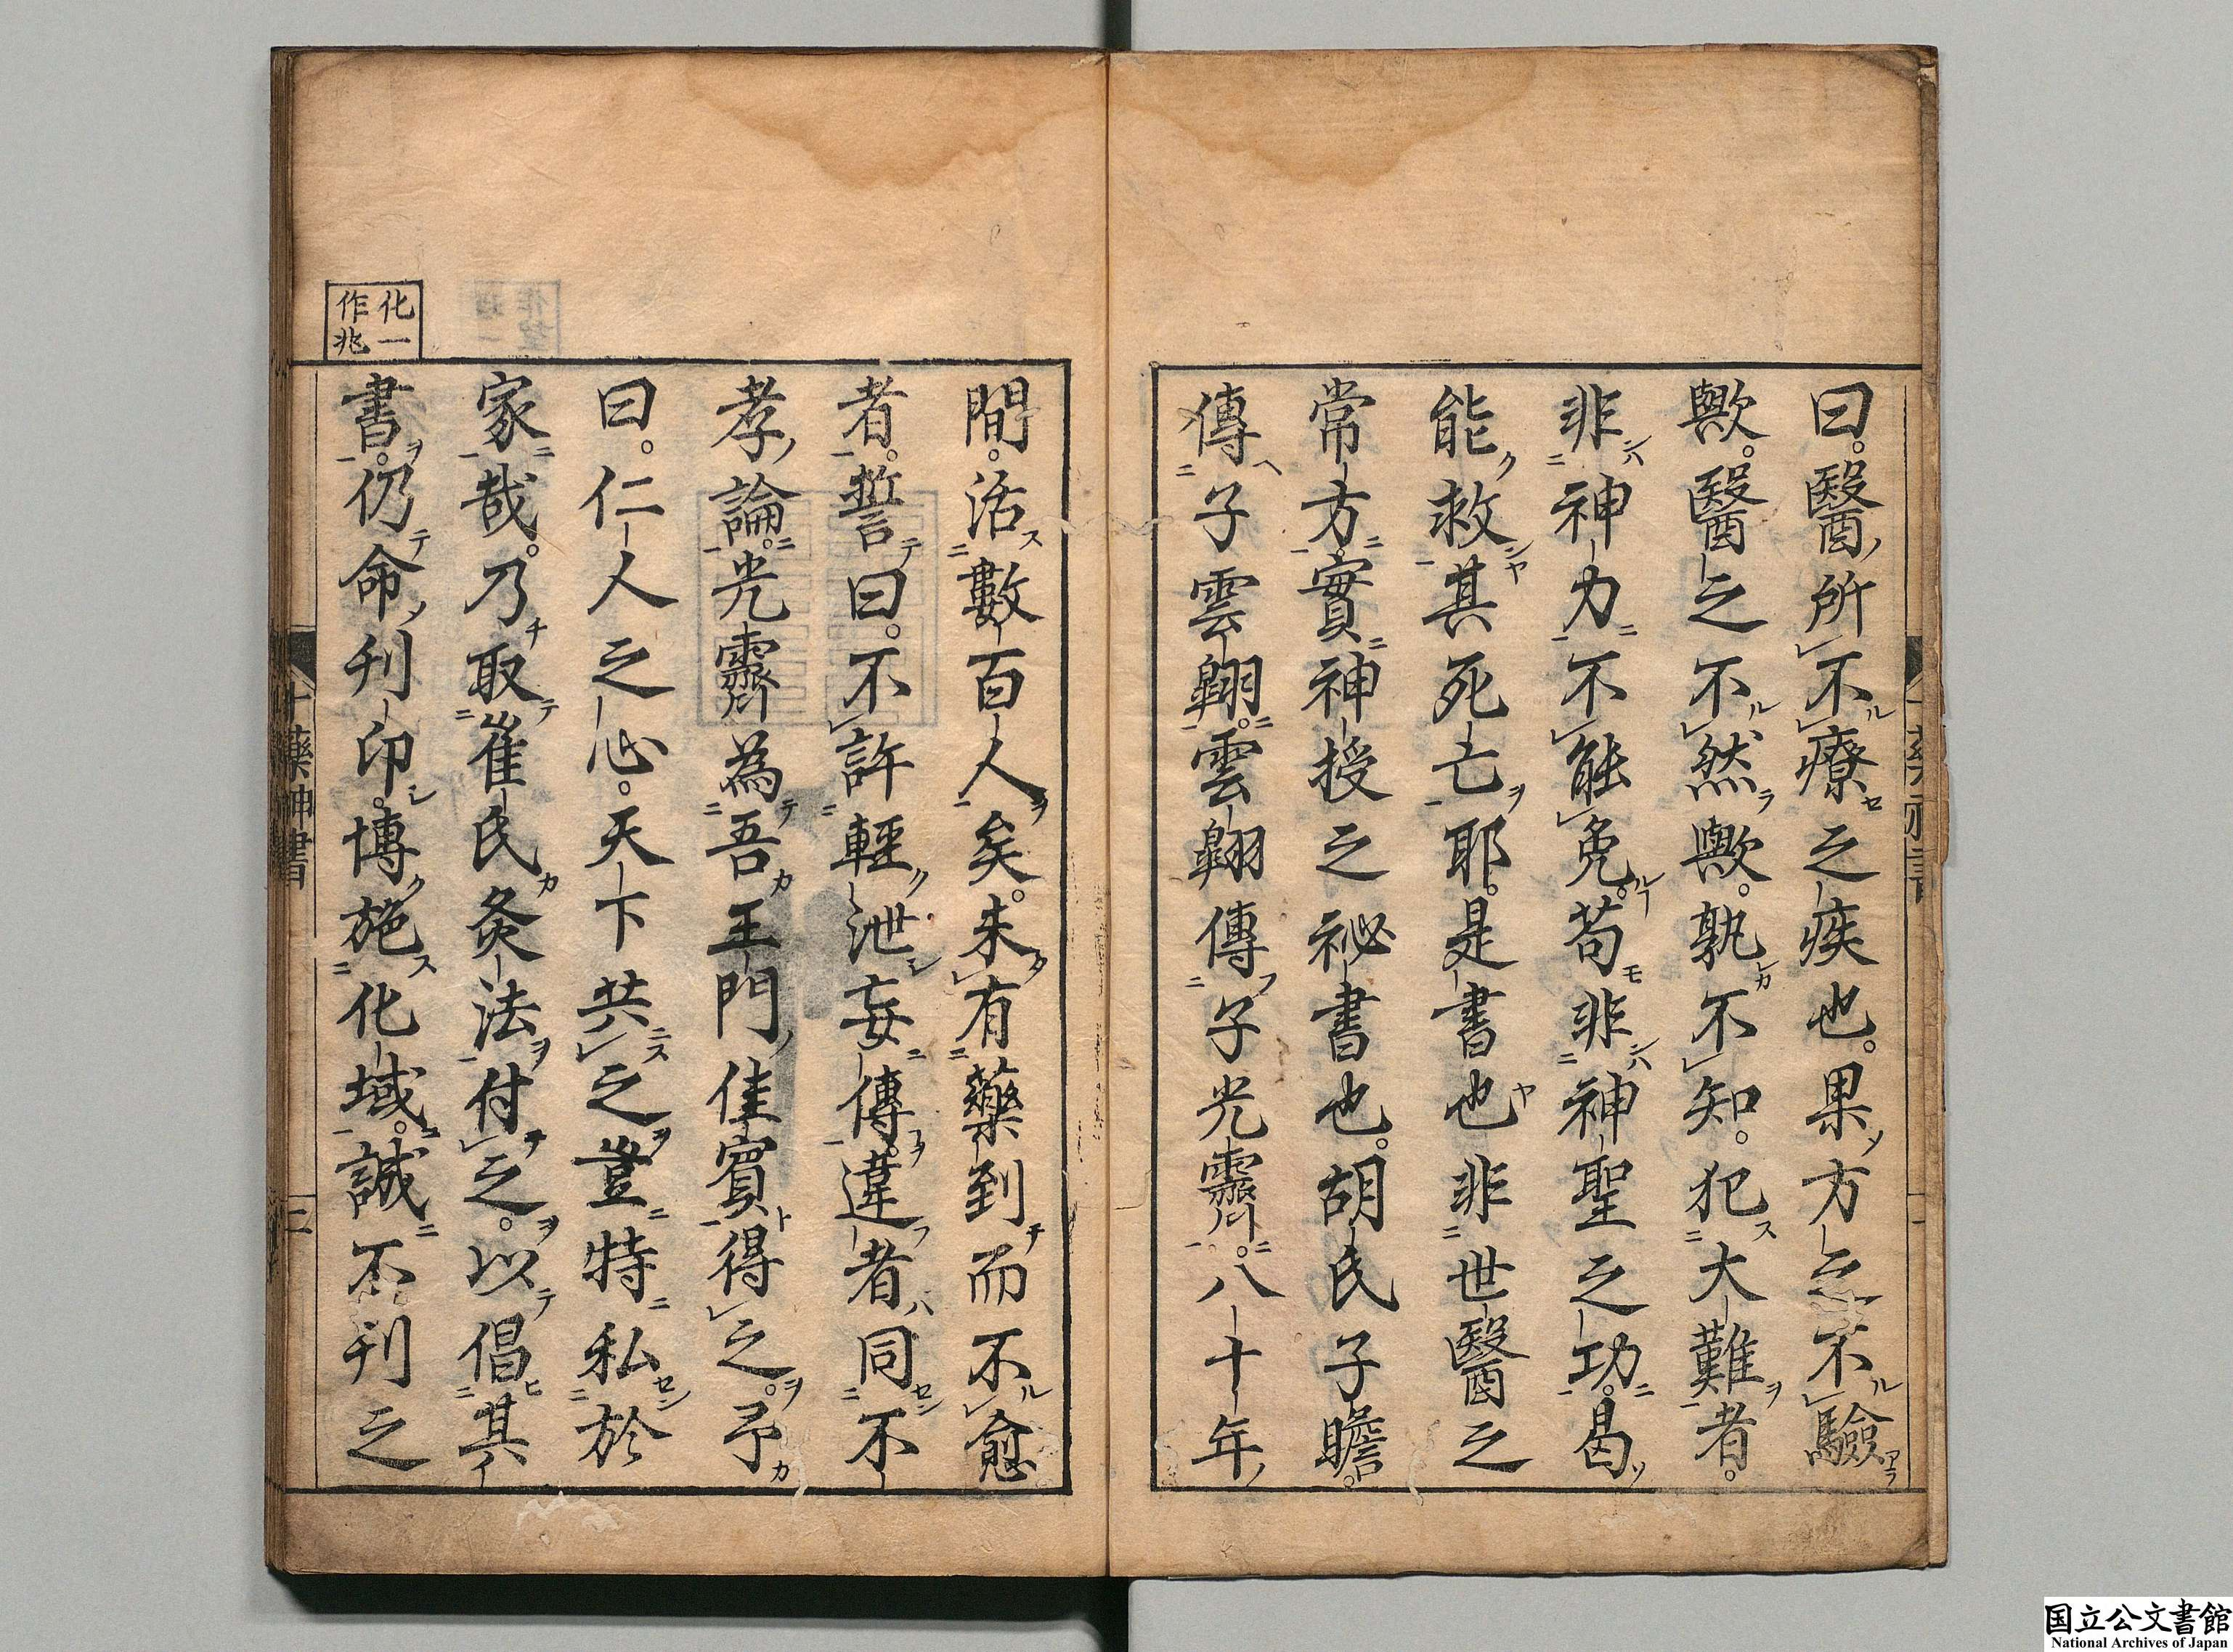 曰。醫所不療之疾也。果方之不驗
歟。醫之不然歟。孰不知。犯大難者。
非神力不能免。苟非神聖之功。曷
能救其死亡耶。是書也非世醫之
常方。實神授之祕書也。胡氏子瞻。
傳子雲翺。雲翺傳子光霽。八十年
間。活數百人矣。未有藥到而不愈
者。誓曰。不許輕泄妄傳。違者同不
孝論。光霽為吾王門佳賓得之。予
曰。仁人之心。天下共之豈特私於
家哉。乃取崔氏灸法付之。以倡其
書。仍命刊印。博施化域。誠不刊之
化一
作兆
十藥神書
二
国立公文書館
National Archives of Japan